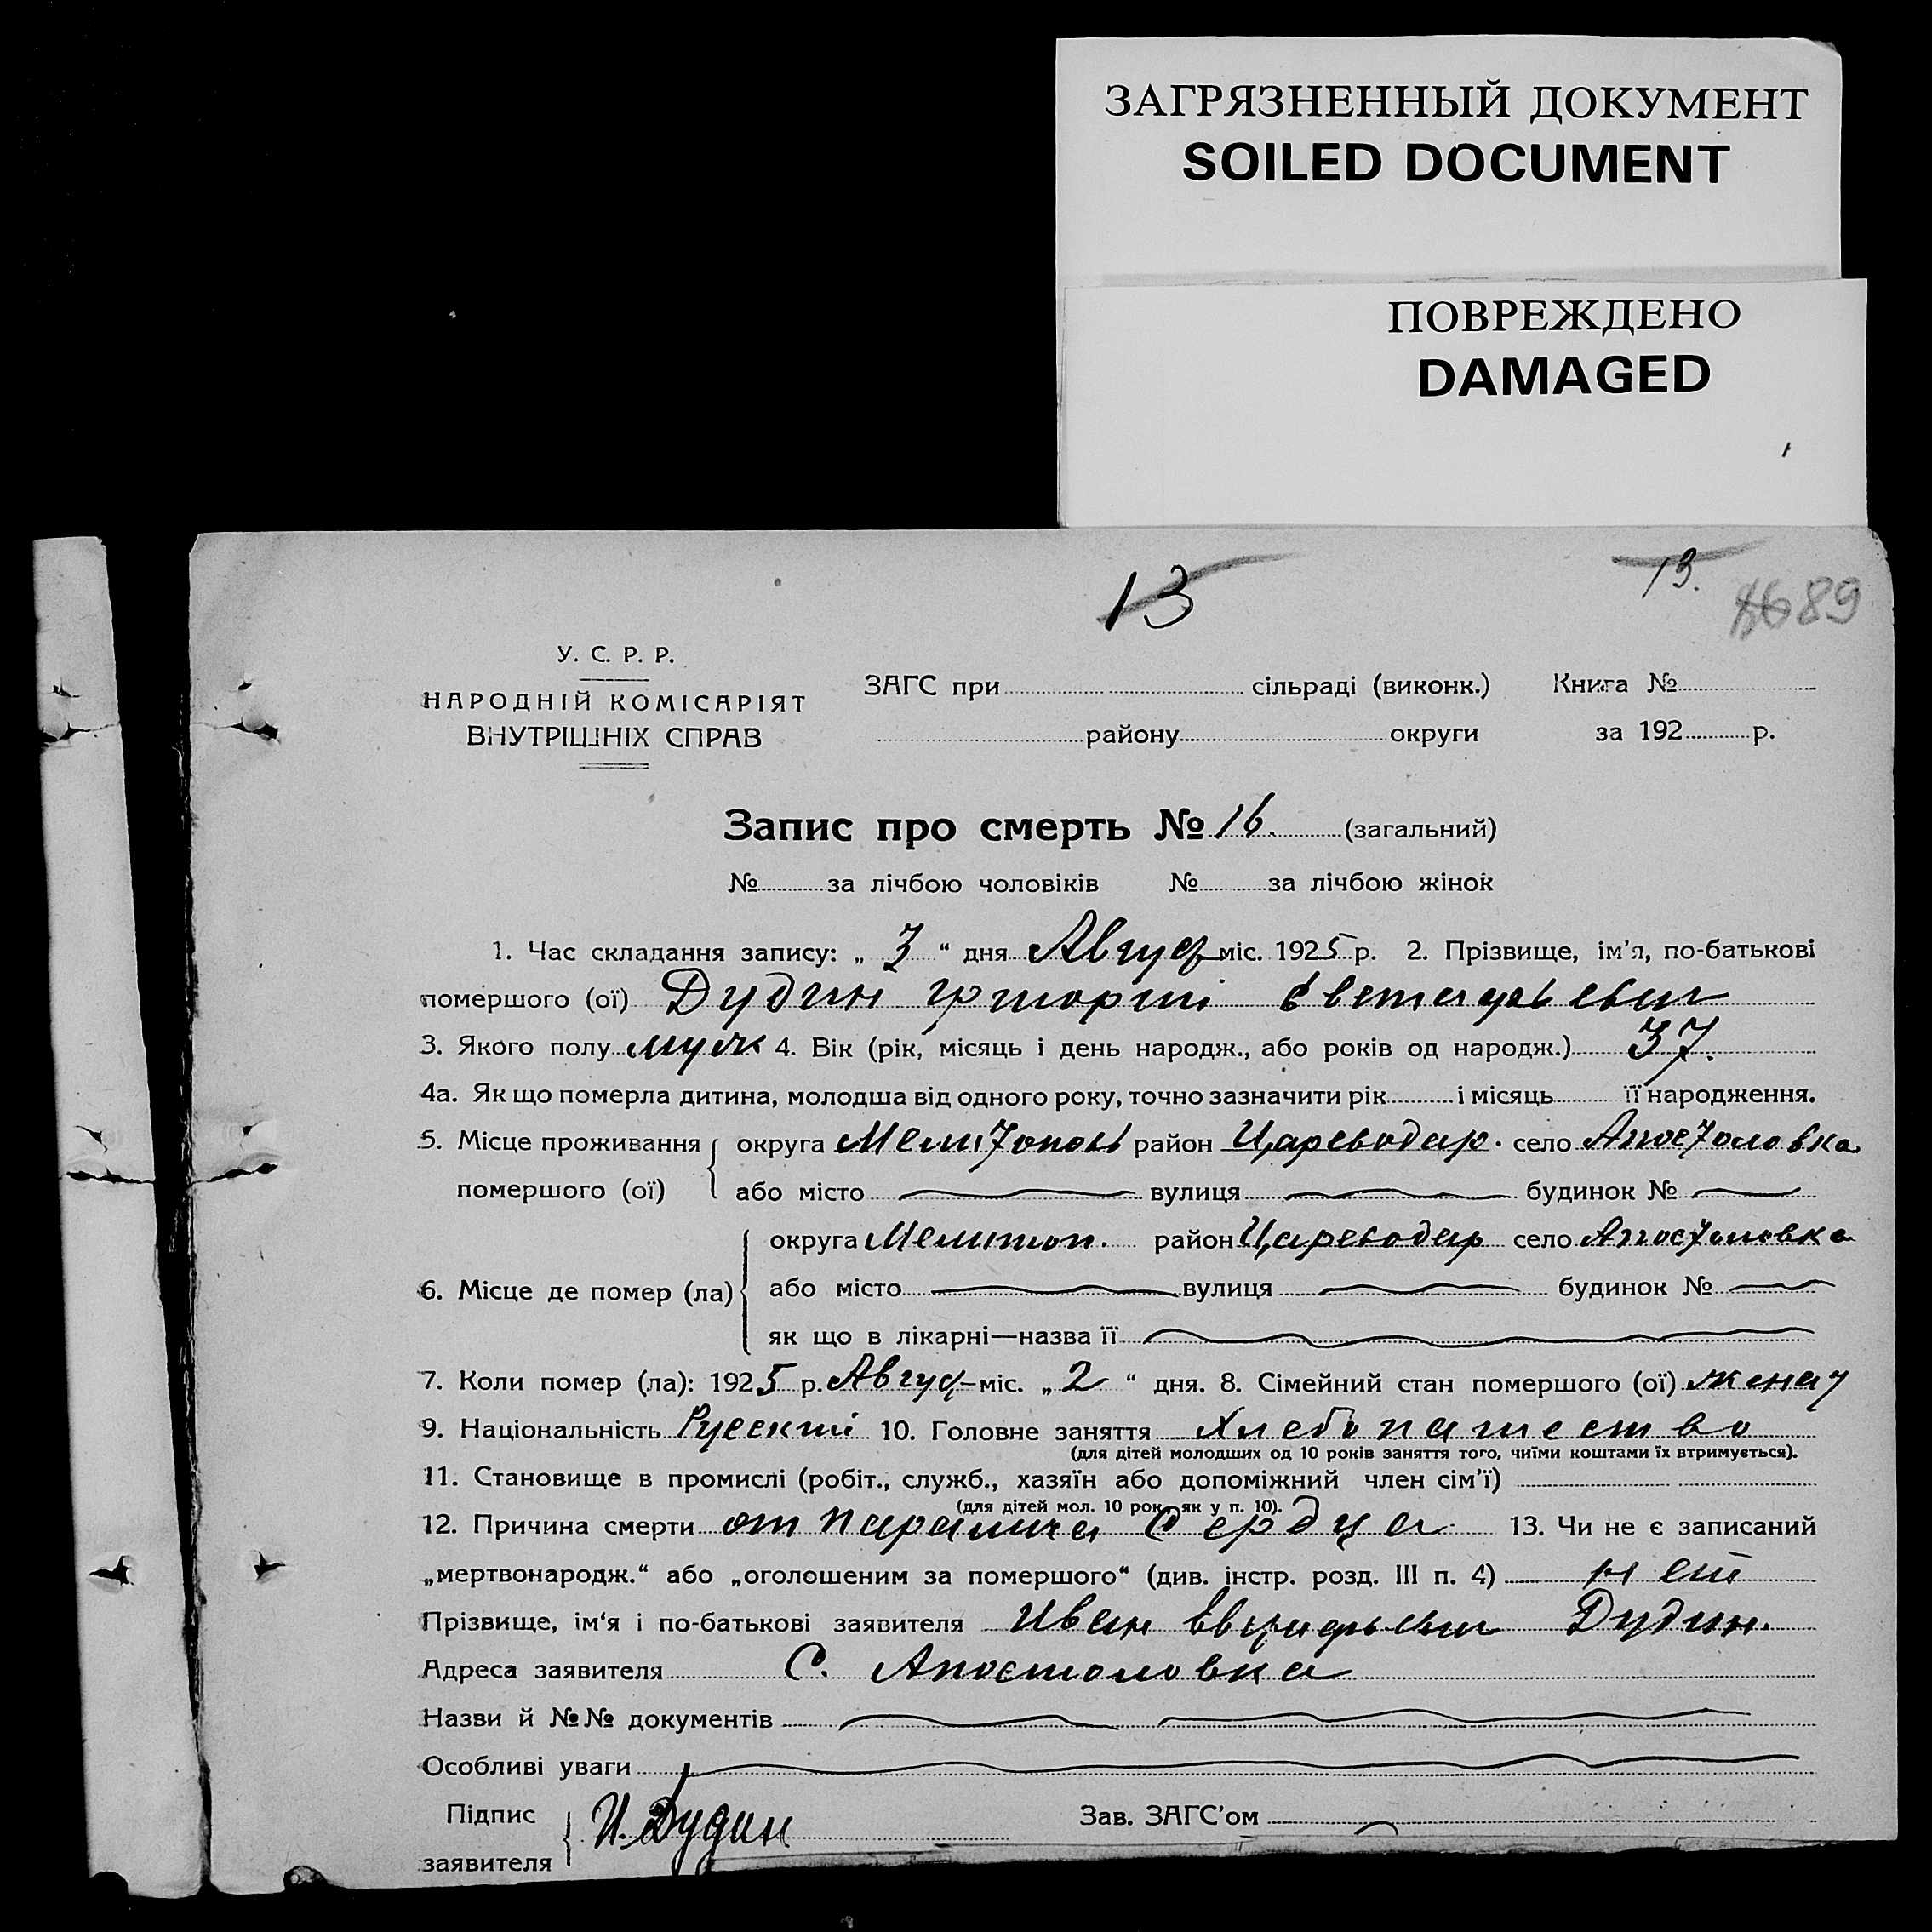 ЗАГРЯЗНЕННЫЙ ДОКУМЕНТ
SOILED DOCUMENT
ПОВРЕЖДЕНО
DAMAGED
13
13.
89
У. С. Р. Р.
НАРОДНІЙ КОМІСАРІЯТ
ВНУТРІШНІХ СПРАВ
ЗАГС при сільраді (виконк.) Книга №
району округи за 192 р.
Запис про смерть № 16. (загальний)
№ за лічбою чоловіків № за лічбою жінок
1. Час складання запису: „ 3 “ дня Авгус міс. 1925 р. 2. Прізвище, ім’я, по-батькові
помершого (ої) Дудин Григорій
3. Якого полу муж 4. Вік (рік, місяць і день народж., або років од народж.) 37.
4а. Як що померла дитина, молодша від одного року, точно зазначити рік і місяць її народження.
5. Місце проживання округа Мелитополь район Цареводар. село Апостоловка
помершого (ої) або місто вулиця будинок №
округа Мелитоп. район Цареводар село Апостоловка
6. Місце де помер (ла) або місто вулиця будинок №
як що в лікарні—назва її
7. Коли помер (ла): 1925 р. Авгус міс. „ 2 “ дня. 8. Сімейний стан помершого (ої) женат
9. Національність Русский 10. Головне заняття Хлебопашество
(для дітей молодших од 10 років заняття того, чиїми коштами їх втримується).
11. Становище в промислі (робіт., служб., хазяїн або допоміжний член сім’ї)
(для дітей мол. 10 рок. як у п. 10).
12. Причина смерти от паралича Сердца 13. Чи не є записаний
„мертвонародж.“ або „оголошеним за помершого“ (див. інстр. розд. III п. 4) нет
Прізвище, ім‘я і по-батькові заявителя Иван Дудин.
Адреса заявителя С. Апостоловка
Назви й №№ документів
Особливі уваги
Підпис
заявителя И. Дудин Зав. ЗАГС’ом